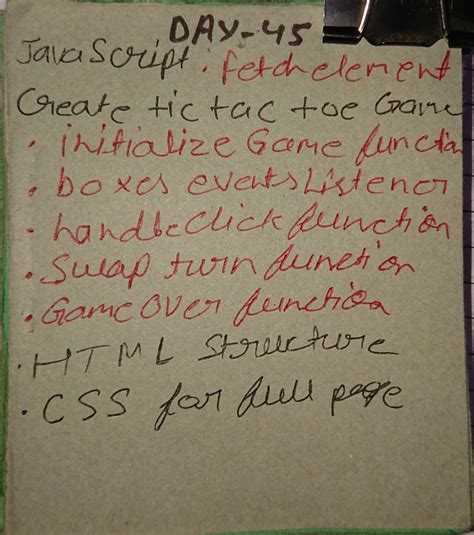 DAY-45
JavaScript. fetch element
Create tic tac toe Game
• initialize Game function
• boxes eventsListener
• handleClick function
• Swap turn function
• GameOver function
• HTML Structure
• CSS for full page